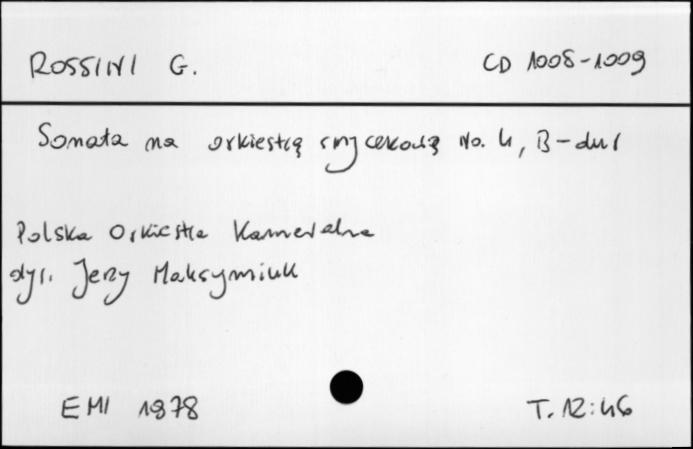 ROSSINI G. CD 1008-1009
Sonata na orkiestrę smyczkową No. 4, B-dur
Polska Orkiestra Kameralna
dyr. Jerzy Maksymiuk
EMI 1978 T. 12:46